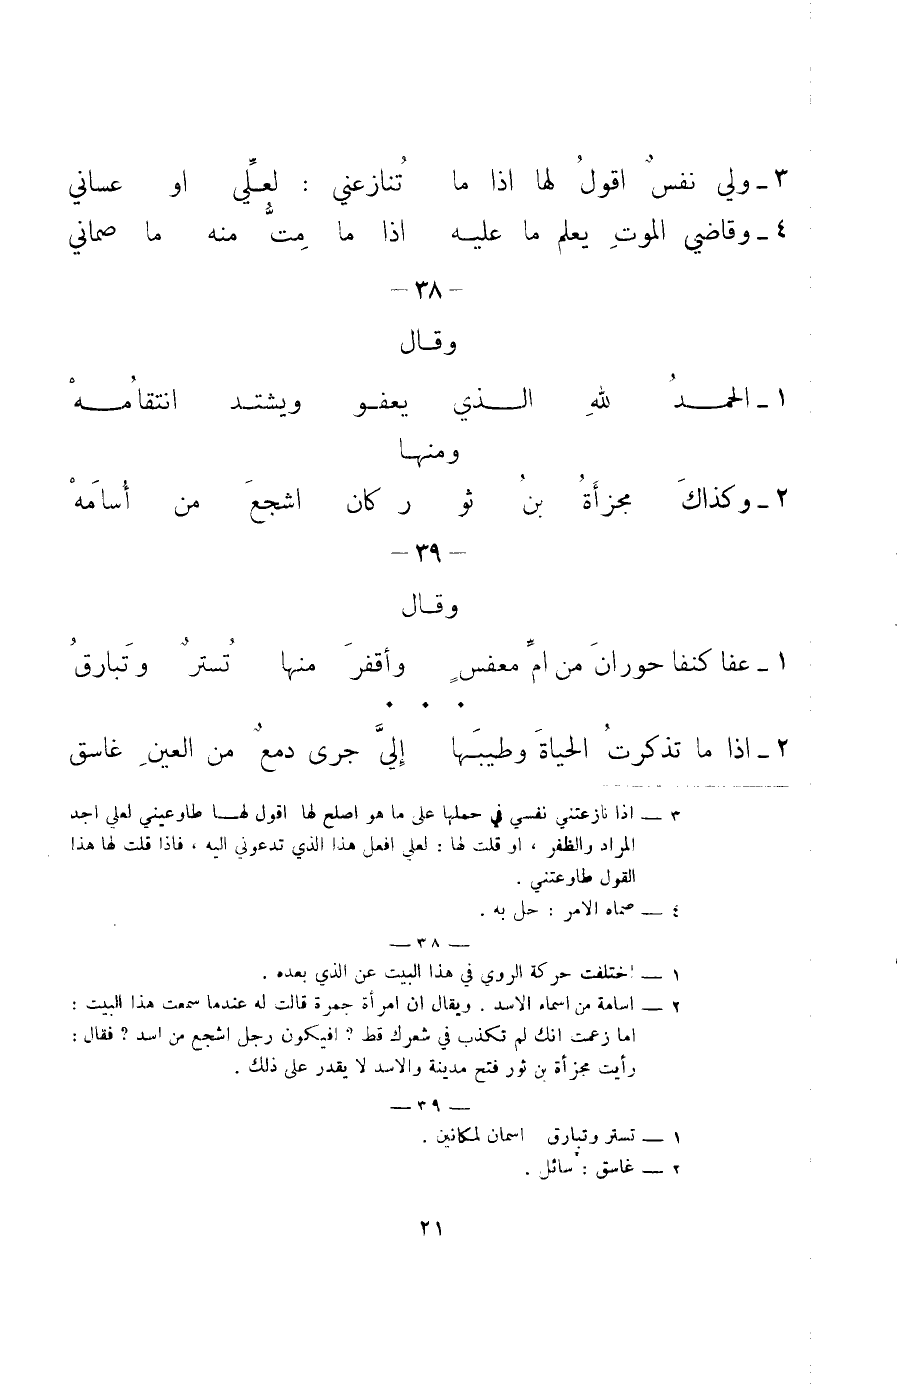 ٣ ـ ولي نفسٌ اقولُ لها اذا ما تُنازعني : لعلِّي او عساني
٤ ـ وقاضي الموتِ يعلم ما عليه اذا ما مِتُّ منه ما صماني
— ٣٨ —
وقال
١ ـ الحمدُ للهِ الذي يعفو ويشتد انتقامُهْ
ومنها
٢ ـ وكذاكَ مجزأَةُ بنُ ثو ر كان اشجعَ من أُسامَهْ
— ٣٩ —
وقال
١ ـ عفا كنفا حورانَ من امِّ معفسٍ وأقفرَ منها تُسترٌ وتَبارقُ
. . .
٢ ـ اذا ما تذكرتُ الحياةَ وطيبَها إليَّ جرى دمعٌ من العينِ غاسق
٣ — اذا نازعتني نفسي في حملها على ما هو اصلع لها اقول لها طاوعيني لعلي اجد
المراد والظفر ، او قلت لها : لعلي افعل هذا الذي تدعوني اليه ، فاذا قلت لها هذا
القول طاوعتني .
٤ — صماه الامر : حل به .
— ٣٨ —
١ — اختلفت حركة الروي في هذا البيت عن الذي بعده .
٢ — اسامة من اسماء الاسد . ويقال ان امرأة جمرة قالت له عندما سمعت هذا البيت :
اما زعمت انك لم تكذب في شعرك قط ؟ افيكون رجل اشجع من اسد ؟ فقال :
رأيت مجزأة بن ثور فتح مدينة والاسد لا يقدر على ذلك .
— ٣٩ —
١ — تستر وتبارق اسمان لمكانين .
٢ — غاسق : سائل .
٢١